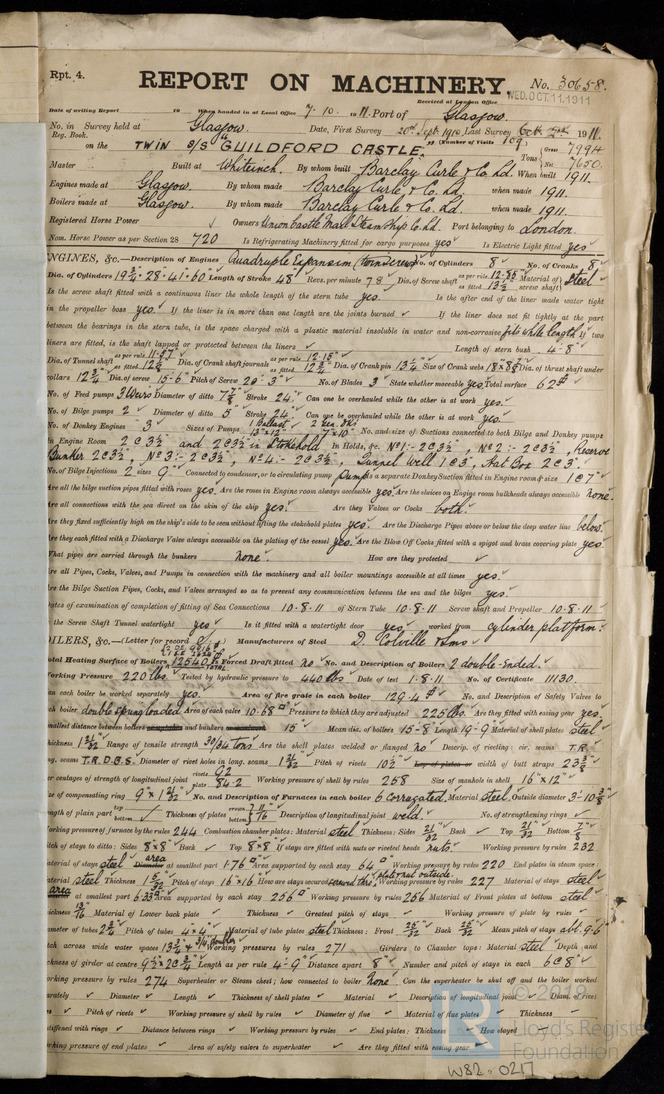 Rpt. 4. REPORT ON MACHINERY. No. 30658.
Received at London Office WED. OCT. 11. 1911
Date of writing Report 19 When handed in at Local Office 7.10.1911. Port of Glasgow.
No. in Survey held at Glasgow. Date, First Survey 20th Sept. 1910 Last Survey 1911.
Reg. Book. (Number of Visits 109)
on the TWIN S/S "GUILDFORD CASTLE" Tons Gross 7994 Net 7650.
Master Built at Whiteinch. By whom built Barclay Curle & Co. Ld. When built 1911.
Engines made at Glasgow. By whom made Barclay Curle & Co. Ld. when made 1911.
Boilers made at Glasgow. By whom made Barclay Curle & Co. Ld. when made 1911.
Registered Horse Power Owners Union Castle Mail Steam Ship Co. Ld. Port belonging to London.
Nom. Horse Power as per Section 28 720 Is Refrigerating Machinery fitted for cargo purposes yes Is Electric Light fitted yes
NGINES, &c.—Description of Engines Quadruple Expansion (twin screw) No. of Cylinders 8 No. of Cranks 8
Dia. of Cylinders 19¾·28·41·60 Length of Stroke 48 Revs. per minute 78 Dia. of Screw shaft as per rule as fitted 13½ Material of screw shaft Steel
Is the screw shaft fitted with a continuous liner the whole length of the stern tube yes. Is the after end of the liner made water tight
in the propeller boss yes. If the liner is in more than one length are the joints burned If the liner does not fit tightly at the part
between the bearings in the stern tube, is the space charged with a plastic material insoluble in water and non-corrosive fits whole length If two
liners are fitted, is the shaft lapped or protected between the liners Length of stern bush 4-8
Dia. of Tunnel shaft as per rule 11.97 as fitted Dia. of Crank shaft journals as per rule as fitted Dia. of Crank pin 13¼ Size of Crank webs Dia. of thrust shaft under
collars 12¾ Dia. of screw 15-6 Pitch of Screw 20-3 No. of Blades 3 State whether moveable yes Total surface 62
No. of Feed pumps 3 Weirs Diameter of ditto Stroke 24 Can one be overhauled while the other is at work yes.
No. of Bilge pumps 2 Diameter of ditto 5 Stroke 24 Can one be overhauled while the other is at work yes.
No. of Donkey Engines 3 Sizes of Pumps 1 Ballast 2 Gen. No. and size of Suctions connected to both Bilge and Donkey pumps
In Engine Room 2 @ 3½ and 2@3½ in Stokehold In Holds, &c. No 1:- 2@3½, No 2:- 2@3½, Reserve
Bunker 2@3½, No 3:- 2@3½, No 4:- 2@3½, Tunnel well 1@3, 2@3.
No. of Bilge Injections 2 sizes 9 Connected to condenser, or to circulating pump pump Is a separate Donkey Suction fitted in Engine room & size 1@7
Are all the bilge suction pipes fitted with roses yes. Are the roses in Engine room always accessible yes. Are the sluices on Engine room bulkheads always accessible none.
Are all connections with the sea direct on the skin of the ship yes. Are they Valves or Cocks both.
Are they fixed sufficiently high on the ship's side to be seen without lifting the stokehold plates yes. Are the Discharge Pipes above or below the deep water line below.
Are they each fitted with a Discharge Valve always accessible on the plating of the vessel yes. Are the Blow Off Cocks fitted with a spigot and brass covering plate yes.
What pipes are carried through the bunkers none. How are they protected
Are all Pipes, Cocks, Valves, and Pumps in connection with the machinery and all boiler mountings accessible at all times yes.
Are the Bilge Suction Pipes, Cocks, and Valves arranged so as to prevent any communication between the sea and the bilges yes.
Dates of examination of completion of fitting of Sea Connections 10.8.11 of Stern Tube 10.8.11 Screw shaft and Propeller 10.8.11
Is the Screw Shaft Tunnel watertight yes Is it fitted with a watertight door yes worked from cylinder platform.
OILERS, &c.—(Letter for record) Manufacturers of Steel D. Colville & Sons.
Total Heating Surface of Boilers 12540 Forced Draft fitted no No. and Description of Boilers 2 double-ended.
Working Pressure 220 lbs. Tested by hydraulic pressure to 440 lbs Date of test 1.8.11 No. of Certificate 11130.
Can each boiler be worked separately yes. Area of fire grate in each boiler 129.4 No. and Description of Safety Valves to
each boiler double spring loaded Area of each valve 10.68 Pressure to which they are adjusted 225 lbs. Are they fitted with easing gear yes.
Smallest distance between boilers and bunkers 15 Mean dia. of boilers 15-8 Length 19-9 Material of shell plates steel
Thickness Range of tensile strength 30/34 tons Are the shell plates welded or flanged no Descrip. of riveting: cir. seams T.R.
long. seams T.R.D.B.S. Diameter of rivet holes in long. seams Pitch of rivets 10½ width of butt straps 23
Per centages of strength of longitudinal joint rivets 92 plate 84.2 Working pressure of shell by rules 258 Size of manhole in shell 16 x 12
Size of compensating ring No. and Description of Furnaces in each boiler 6 corrugated. Material steel Outside diameter
Length of plain part top bottom Thickness of plates crown bottom Description of longitudinal joint weld. No. of strengthening rings
Working pressure of furnace by the rules 244 Combustion chamber plates: Material steel Thickness: Sides 21/32 Back Top 21/32 Bottom 7/8
Pitch of stays to ditto: Sides 8x8 Back Top 8x8 If stays are fitted with nuts or riveted heads nuts. Working pressure by rules 232
Material of stays steel area at smallest part 1.76 Area supported by each stay 64 Working pressure by rules 220 End plates in steam space:
Material steel Thickness Pitch of stays 16x16 How are stays secured Working pressure by rules 227 Material of stays steel
area at smallest part Area supported by each stay 256 Working pressure by rules 256 Material of Front plates at bottom steel
Thickness Material of Lower back plate Thickness Greatest pitch of stays Working pressure of plate by rules
Diameter of tubes Pitch of tubes 4x4 Material of tube plates steel Thickness: Front 26/32 Back Mean pitch of stays
Pitch across wide water spaces Working pressures by rules 271 Girders to Chamber tops: Material steel Depth and
thickness of girder at centre Length as per rule Distance apart 8 Number and pitch of stays in each 6@8
Working pressure by rules 274 Superheater or Steam chest; how connected to boiler none. Can the superheater be shut off and the boiler worked
separately Diameter Length Thickness of shell plates Material Description of longitudinal joint Diam. of rivet
holes Pitch of rivets Working pressure of shell by rules Diameter of flue Material of flue plates Thickness
If stiffened with rings Distance between rings Working pressure by rules End plates: Thickness How stayed
Working pressure of end plates Area of safety valves to superheater Are they fitted with easing gear
© 2019
Lloyd's Register
Foundation
W82-0217